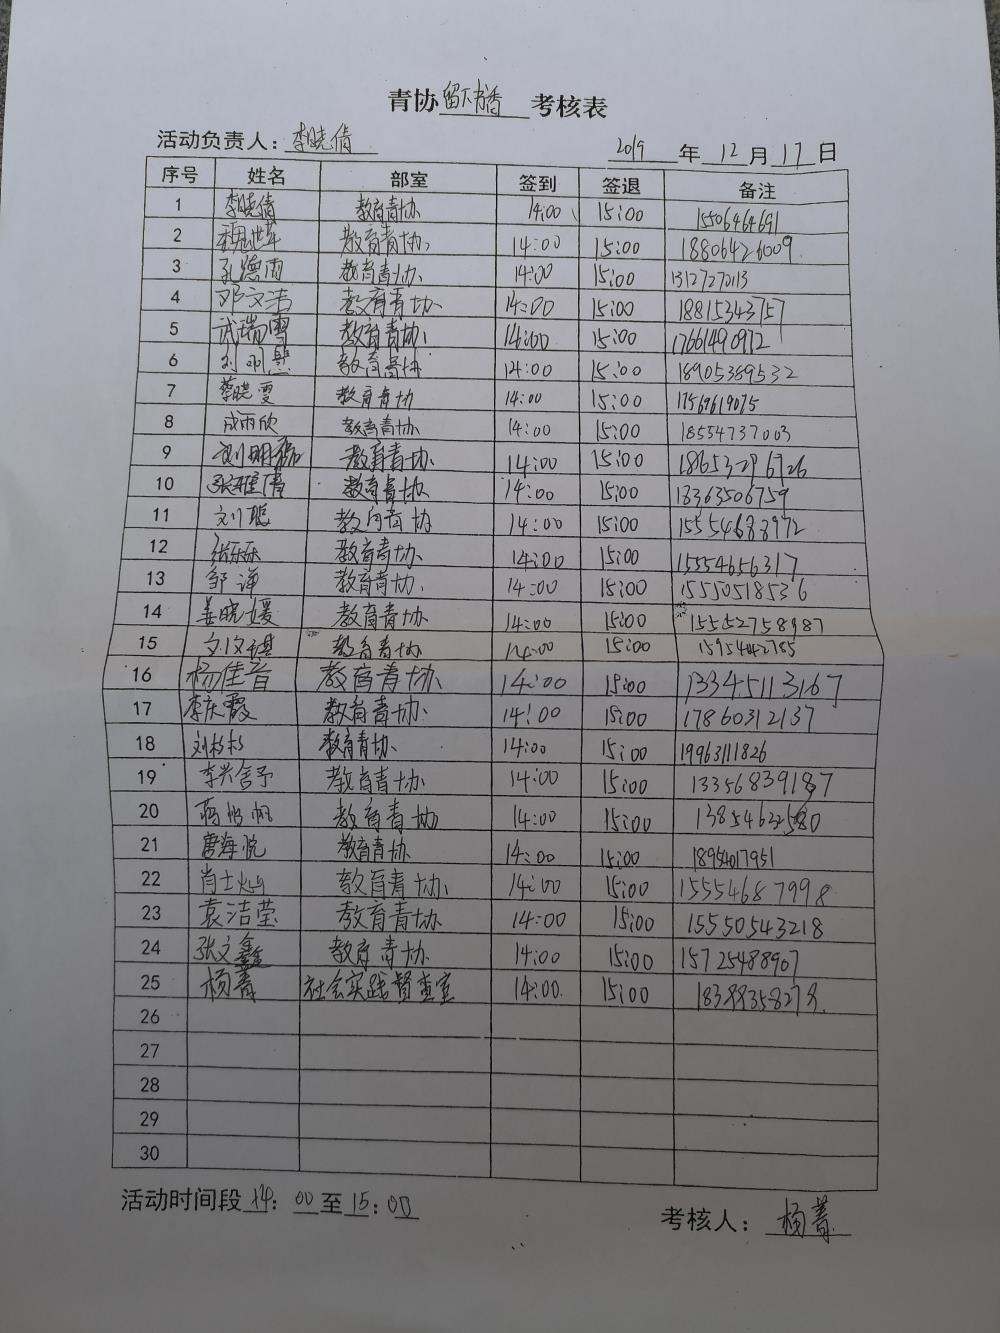 青协留下书香考核表
活动负责人：李晓倩 2019年12月17日
序号 姓名 部室 签到 签退 备注
1 李晓倩 教育青协 14:00 15:00 15506464691
2 教育青协 14:00 15:00 18806426009
3 孔德雨 教育青协 14:00 15:00 13127270113
4 邓文涛 教育青协 14:00 15:00 18815343757
5 武瑞雪 教育青协 14:00 15:00 17661490972
6 教育青协 14:00 15:00 18905389532
7 蔡晓雯 教育青协 14:00 15:00 17569619075
8 成雨欣 教育青协 14:00 15:00 18554737003
9 教育青协 14:00 15:00
10 张雅倩 教育青协 14:00 15:00 18363506759
11 刘聪 教育青协 14:00 15:00 15554683972
12 张乐乐 教育青协 14:00 15:00 15554656317
13 邹谦 教育青协 14:00 15:00 15550518536
14 姜晓媛 教育青协 14:00 15:00 15552758987
15 教育青协 14:00 15:00
16 杨佳音 教育青协 14:00 15:00 13345113167
17 李庆霞 教育青协 14:00 15:00 17860312137
18 刘杉杉 教育青协 14:00 15:00 19963111826
19 李兴舍予 教育青协 14:00 15:00 13356839187
20 教育青协 14:00 15:00
21 唐海悦 教育青协 14:00 15:00 18954017951
22 肖士灿 教育青协 14:00 15:00 15554687998
23 袁洁莹 教育青协 14:00 15:00 15550543218
24 张文鑫 教育青协 14:00 15:00 15725488907
25 杨菁 社会实践督查室 14:00 15:00
26
27
28
29
30
活动时间段14：00至15：00
考核人：杨菁